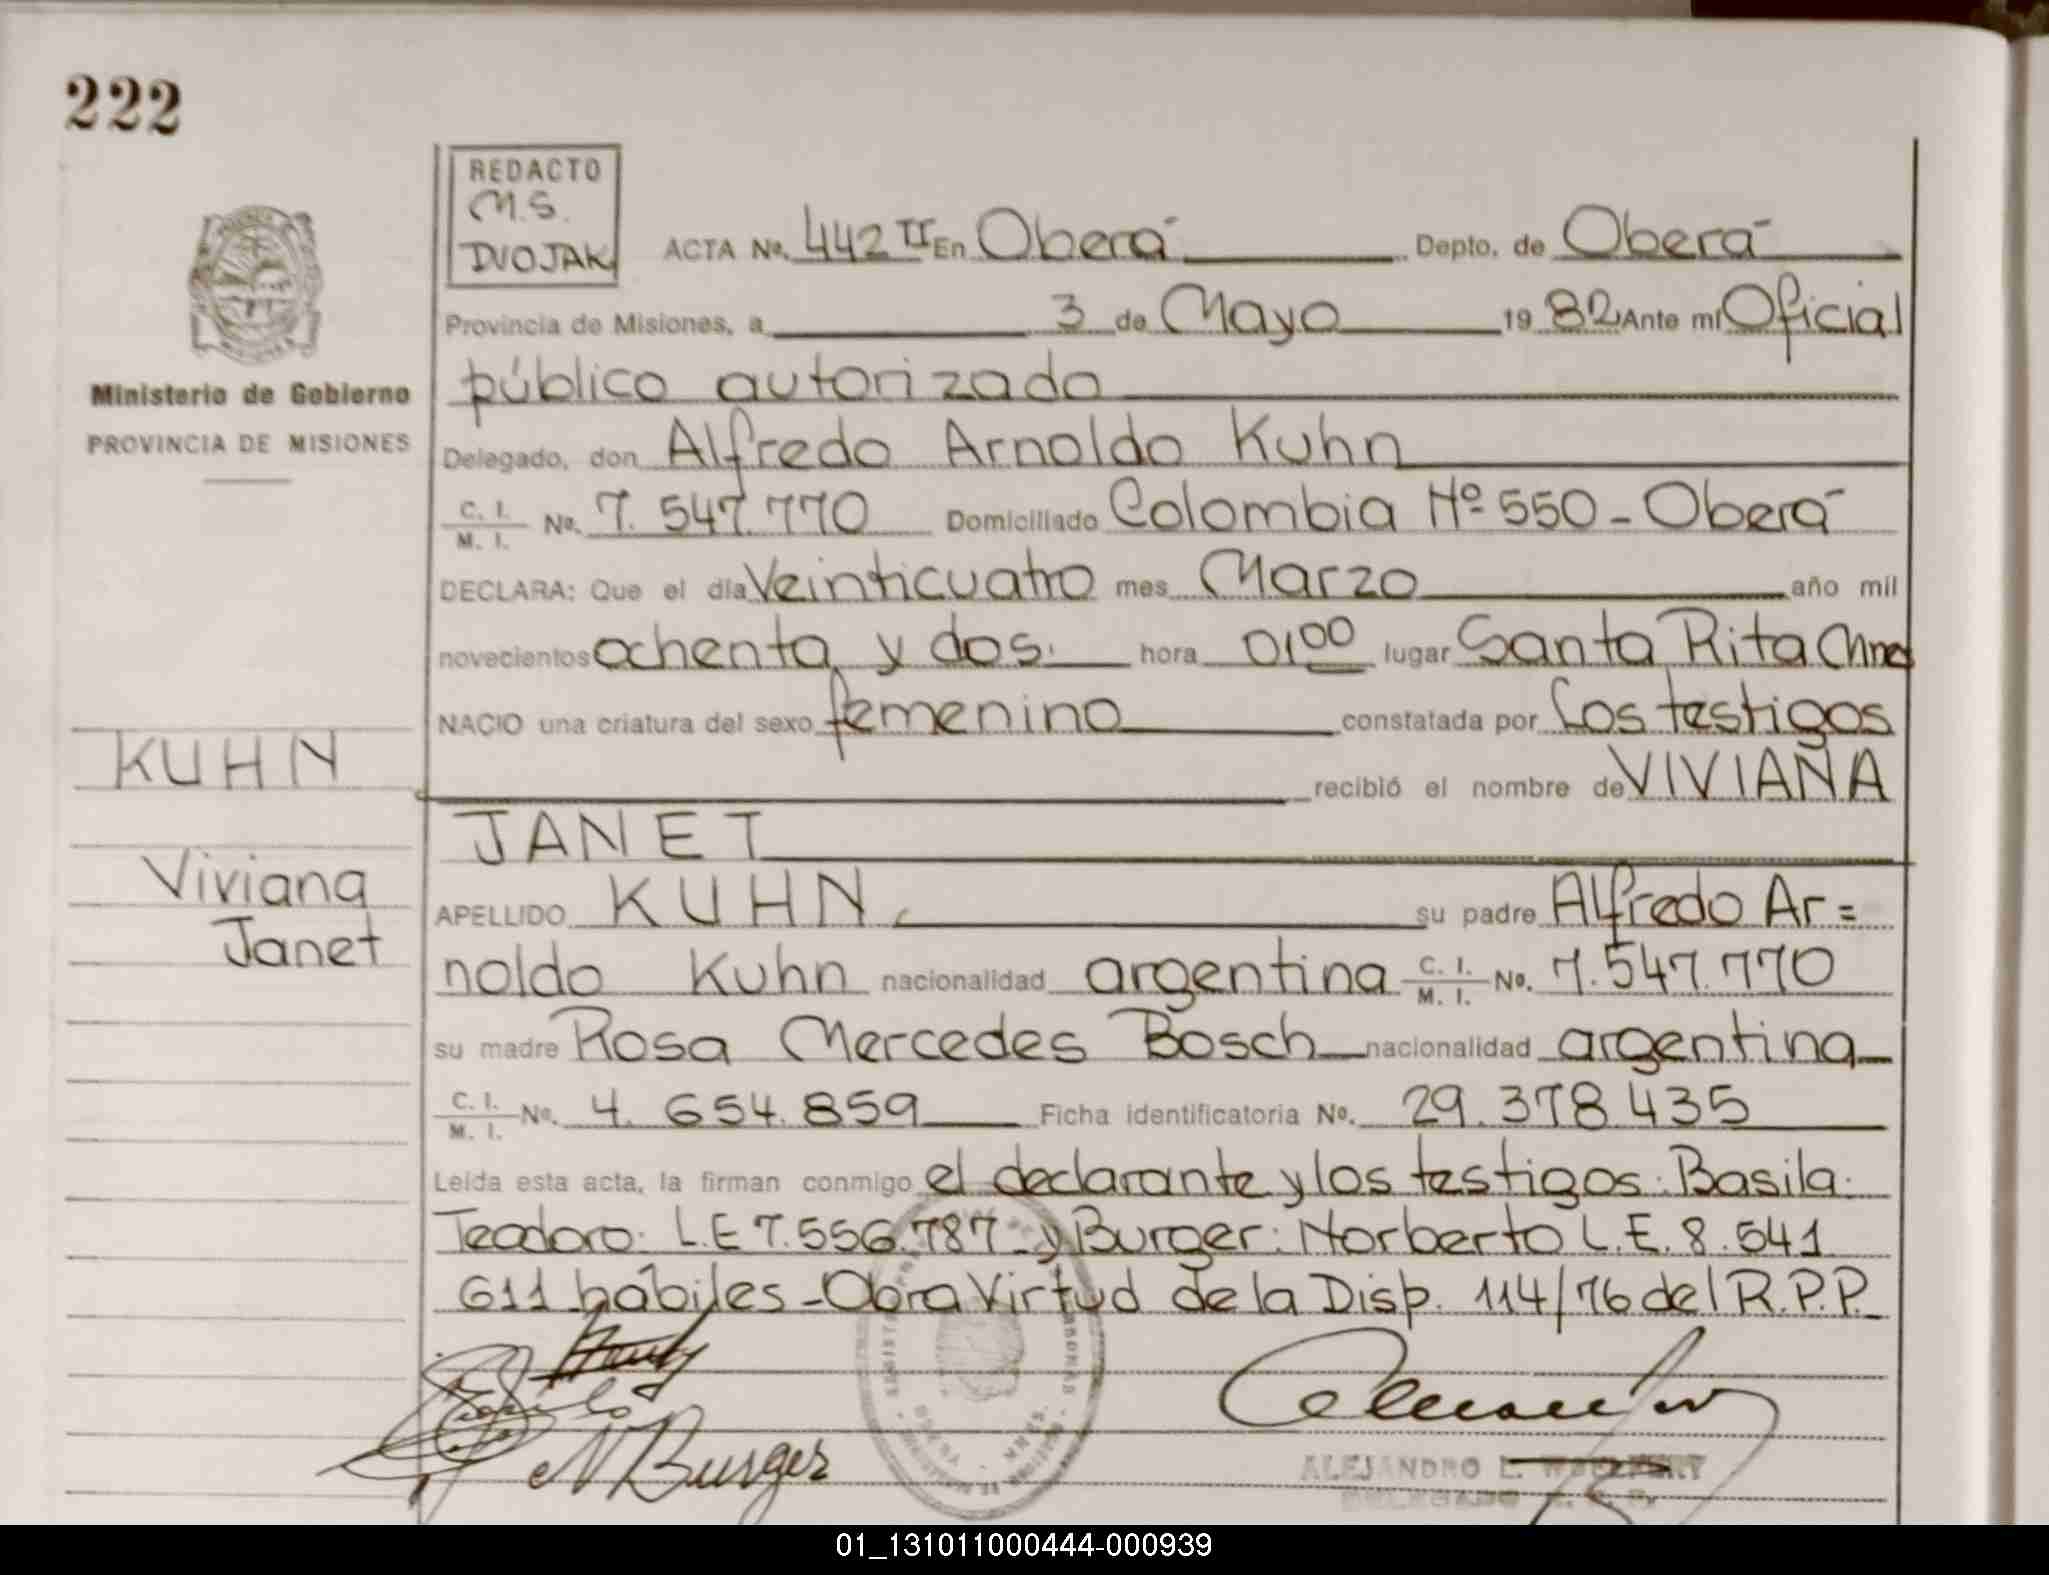 222
REDACTO
M.S.
DVOJAK
ACTA No. 442 II En Oberá Depto. de Oberá
Provincia de Misiones, a 3 de Mayo 19 82 Ante mí Oficial
Ministerio de Gobierno
PROVINCIA DE MISIONES
público autorizado
Delegado, don Alfredo Arnoldo Kuhn
C. I. / M. I. No. 7.547.770 Domiciliado Colombia Nº 550 - Oberá
DECLARA: Que el día Veinticuatro mes Marzo año mil
novecientos ochenta y dos. hora 01 00 lugar Santa Rita
NACIO una criatura del sexo femenino constatada por Los testigos
recibió el nombre de VIVIANA
JANET
KUHN
Viviana
Janet
APELLIDO KUHN su padre Alfredo Ar=
noldo Kuhn nacionalidad argentina C. I. / M. I. No. 7.547.770
su madre Rosa Mercedes Bosch nacionalidad argentina
C. I. / M. I. No. 4.654.859 Ficha identificatoria No. 29.378.435
Leída esta acta, la firman conmigo el declarante y los testigos: Basila
Teodoro: L.E 7.556.787 - y Burger: Norberto L.E. 8.541
611 hábiles - Obra Virtud de la Disp. 114/76 del R.P.P.
N Burger
ALEJANDRO L.
DELEGADO
01_131011000444-000939